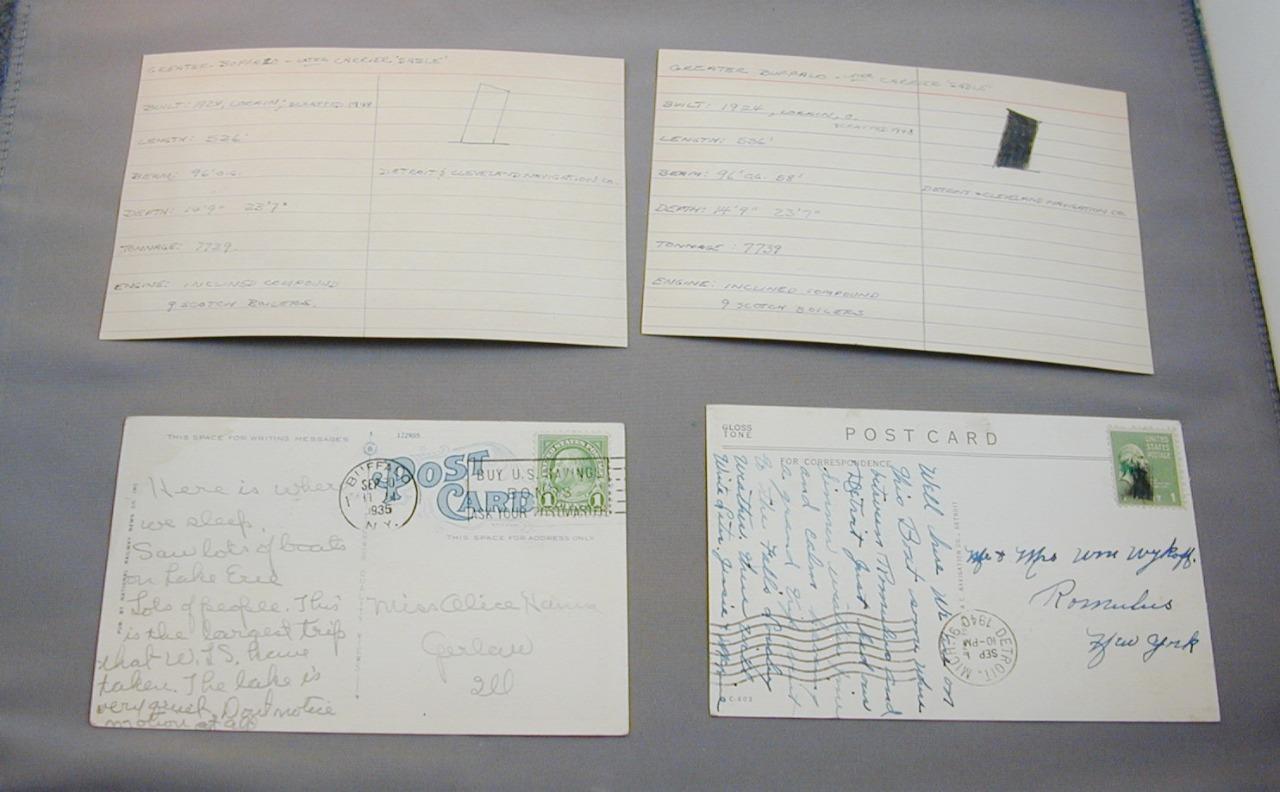 GREATER BUFFALO - LATER CARRIER 'SABLE'
BUILT: 1924, LORAIN, SCRAPPED 1948
LENGTH: 536'
BEAM: 96' O.G.
DETROIT & CLEVELAND NAVIGATION CO.
DEPTH: 14'9" 23'7"
TONNAGE: 7739
ENGINE: INCLINED COMPOUND
9 SCOTCH BOILERS.
GREATER BUFFALO - LATER CARRIER 'SABLE'
BUILT: 1924, LORAIN, O.
SCRAPPED 1948
LENGTH: 536'
BEAM: 96' O.G. 58'
DETROIT & CLEVELAND NAVIGATION CO.
DEPTH: 14'9" 23'7"
TONNAGE: 7739
ENGINE: INCLINED COMPOUND
9 SCOTCH BOILERS
THIS SPACE FOR WRITING MESSAGES
122905
POST
CARD
BUFFALO
SEP
1935
N.Y.
BUY U.S. SAVINGS
BONDS
ASK YOUR POSTMASTER
1 1
THIS SPACE FOR ADDRESS ONLY
Here is where
we sleep.
Saw lots of boats
on Lake Erie
Lots of people. This
is the largest trip
that W.L.S. have
taken. The lake is
very quiet. Dont notice
motion at all
Miss Alice
Gerlaw
Ill
GLOSS
TONE
POST CARD
FOR CORRESPONDENCE
UNITED
STATES
POSTAGE
1
Well here we are on
this Boat somewhere
between and
Detroit just had our
dinner
and calm
a grand trip
to the Falls
Weather
Write
Mr & Mrs Wm Wykoff.
Romulus
New York
DETROIT, MICH.
SEP
10-PM
1940
C-403